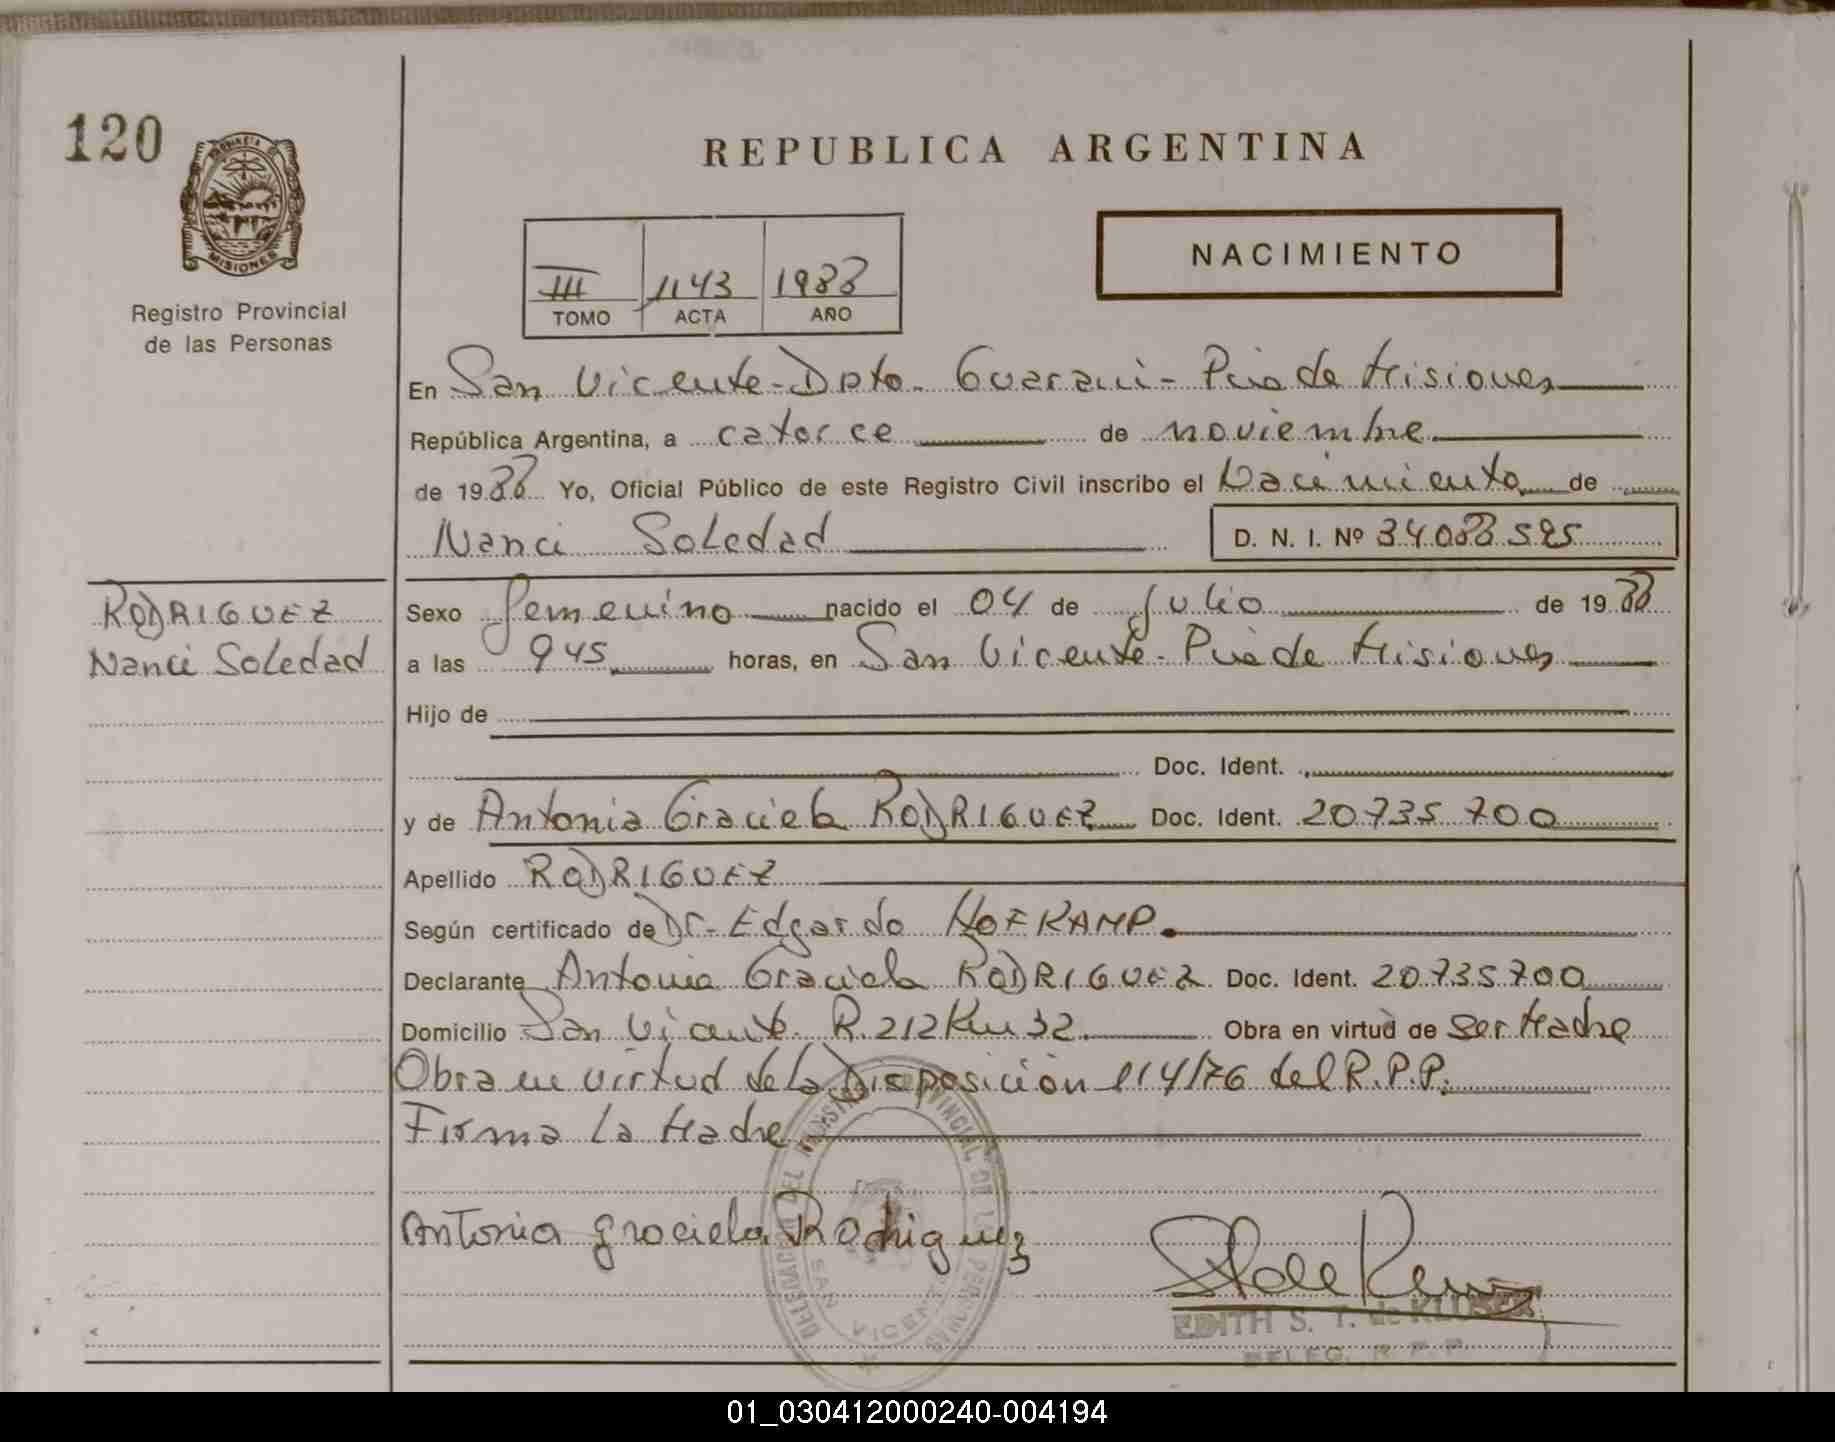 120
PROVINCIA DE
MISIONES
Registro Provincial
de las Personas
REPUBLICA ARGENTINA
III 1143 1988
TOMO ACTA AÑO
NACIMIENTO
En San Vicente - Dpto. Guarani - Pcia de Misiones
República Argentina, a catorce de noviembre
de 1988 Yo, Oficial Público de este Registro Civil inscribo el Nacimiento de
Nanci Soledad D. N. I. Nº 34.088.595
RODRIGUEZ
Nanci Soledad
Sexo femenino nacido el 04 de julio de 1988
a las 945 horas, en San Vicente - Pcia de Misiones
Hijo de
Doc. Ident.
y de Antonia Graciela RODRIGUEZ Doc. Ident. 20.735.700
Apellido RODRIGUEZ
Según certificado de Dr. Edgardo HOFKAMP.
Declarante Antonia Graciela RODRIGUEZ Doc. Ident. 20.735.700
Domicilio San Vicente R. 212 Km 32 Obra en virtud de ser Madre
Obra en virtud de la Disposición 114/76 del R.P.P.
Firma la Madre
Antonia graciela Rodriguez
SAN VICENTE
EDITH S. T. de KLUSER
DELEG. R. P. P.
01_030412000240-004194